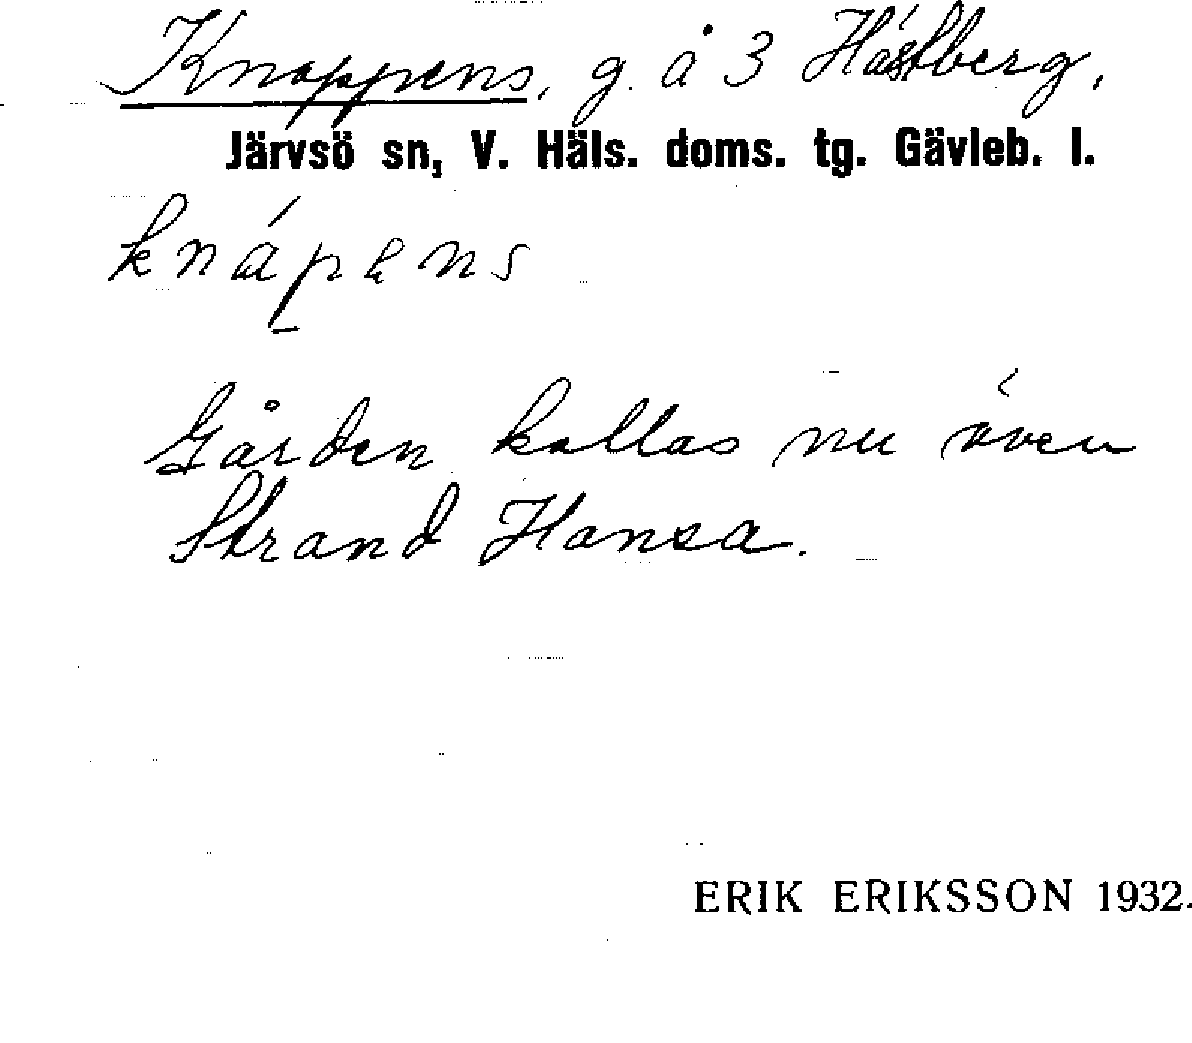 Knoppens, g. å 3 Hästberg,
Järvsö sn, V. Häls. doms. tg. Gävleb. l.
knápens
Gården kallas nu även
Strand Hansa.
ERIK ERIKSSON 1932.